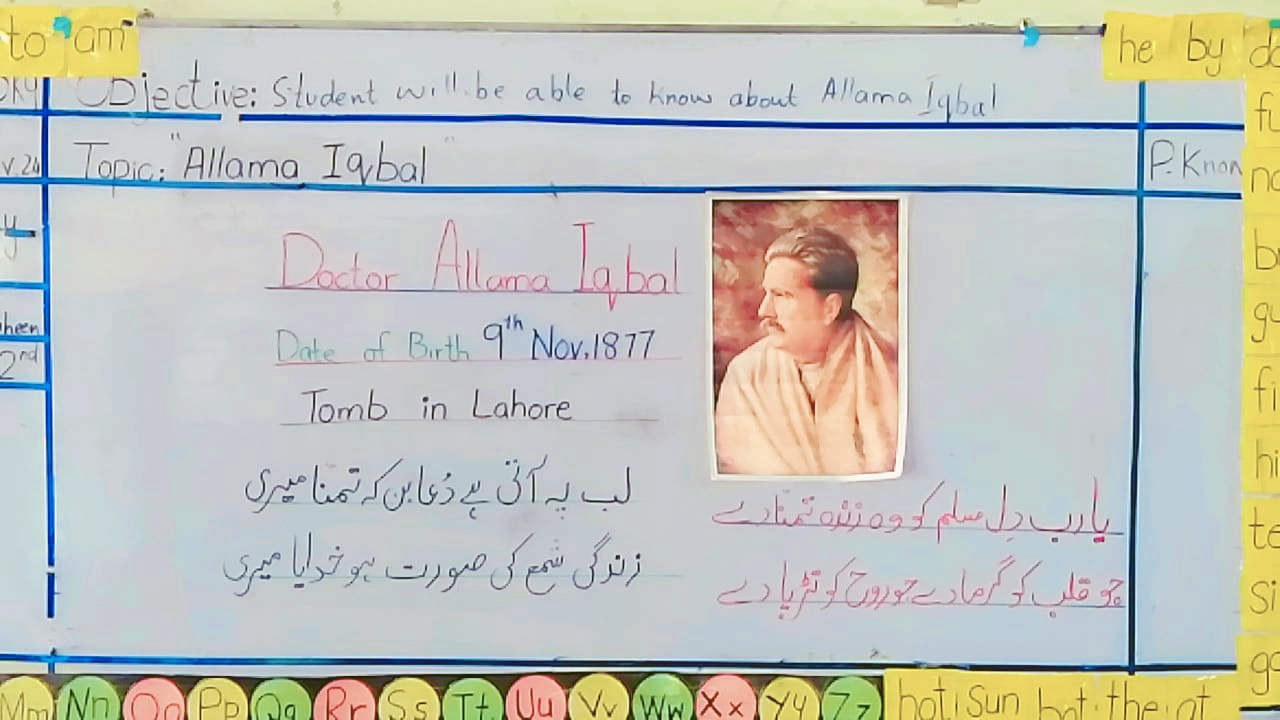 to am
he by
Objective: Student will be able to know about Allama Iqbal
Topic: "Allama Iqbal"
P.Know
Doctor Allama Iqbal
Date of Birth 9th Nov.1877
Tomb in Lahore
لب پہ آتی ہے دُعا بن کہ تمنا میری
زندگی شمع کی صورت ہو خدایا میری
یا رب دِل مسلم کو وہ زندہ تمنا دے
جو قلب کو گرما دے جو روح کو تڑپا دے
2nd
Mm Nn Oo Pp Qq Rr Ss Tt Uu Vv Ww Xx Yy Zz
hot sun bat the at